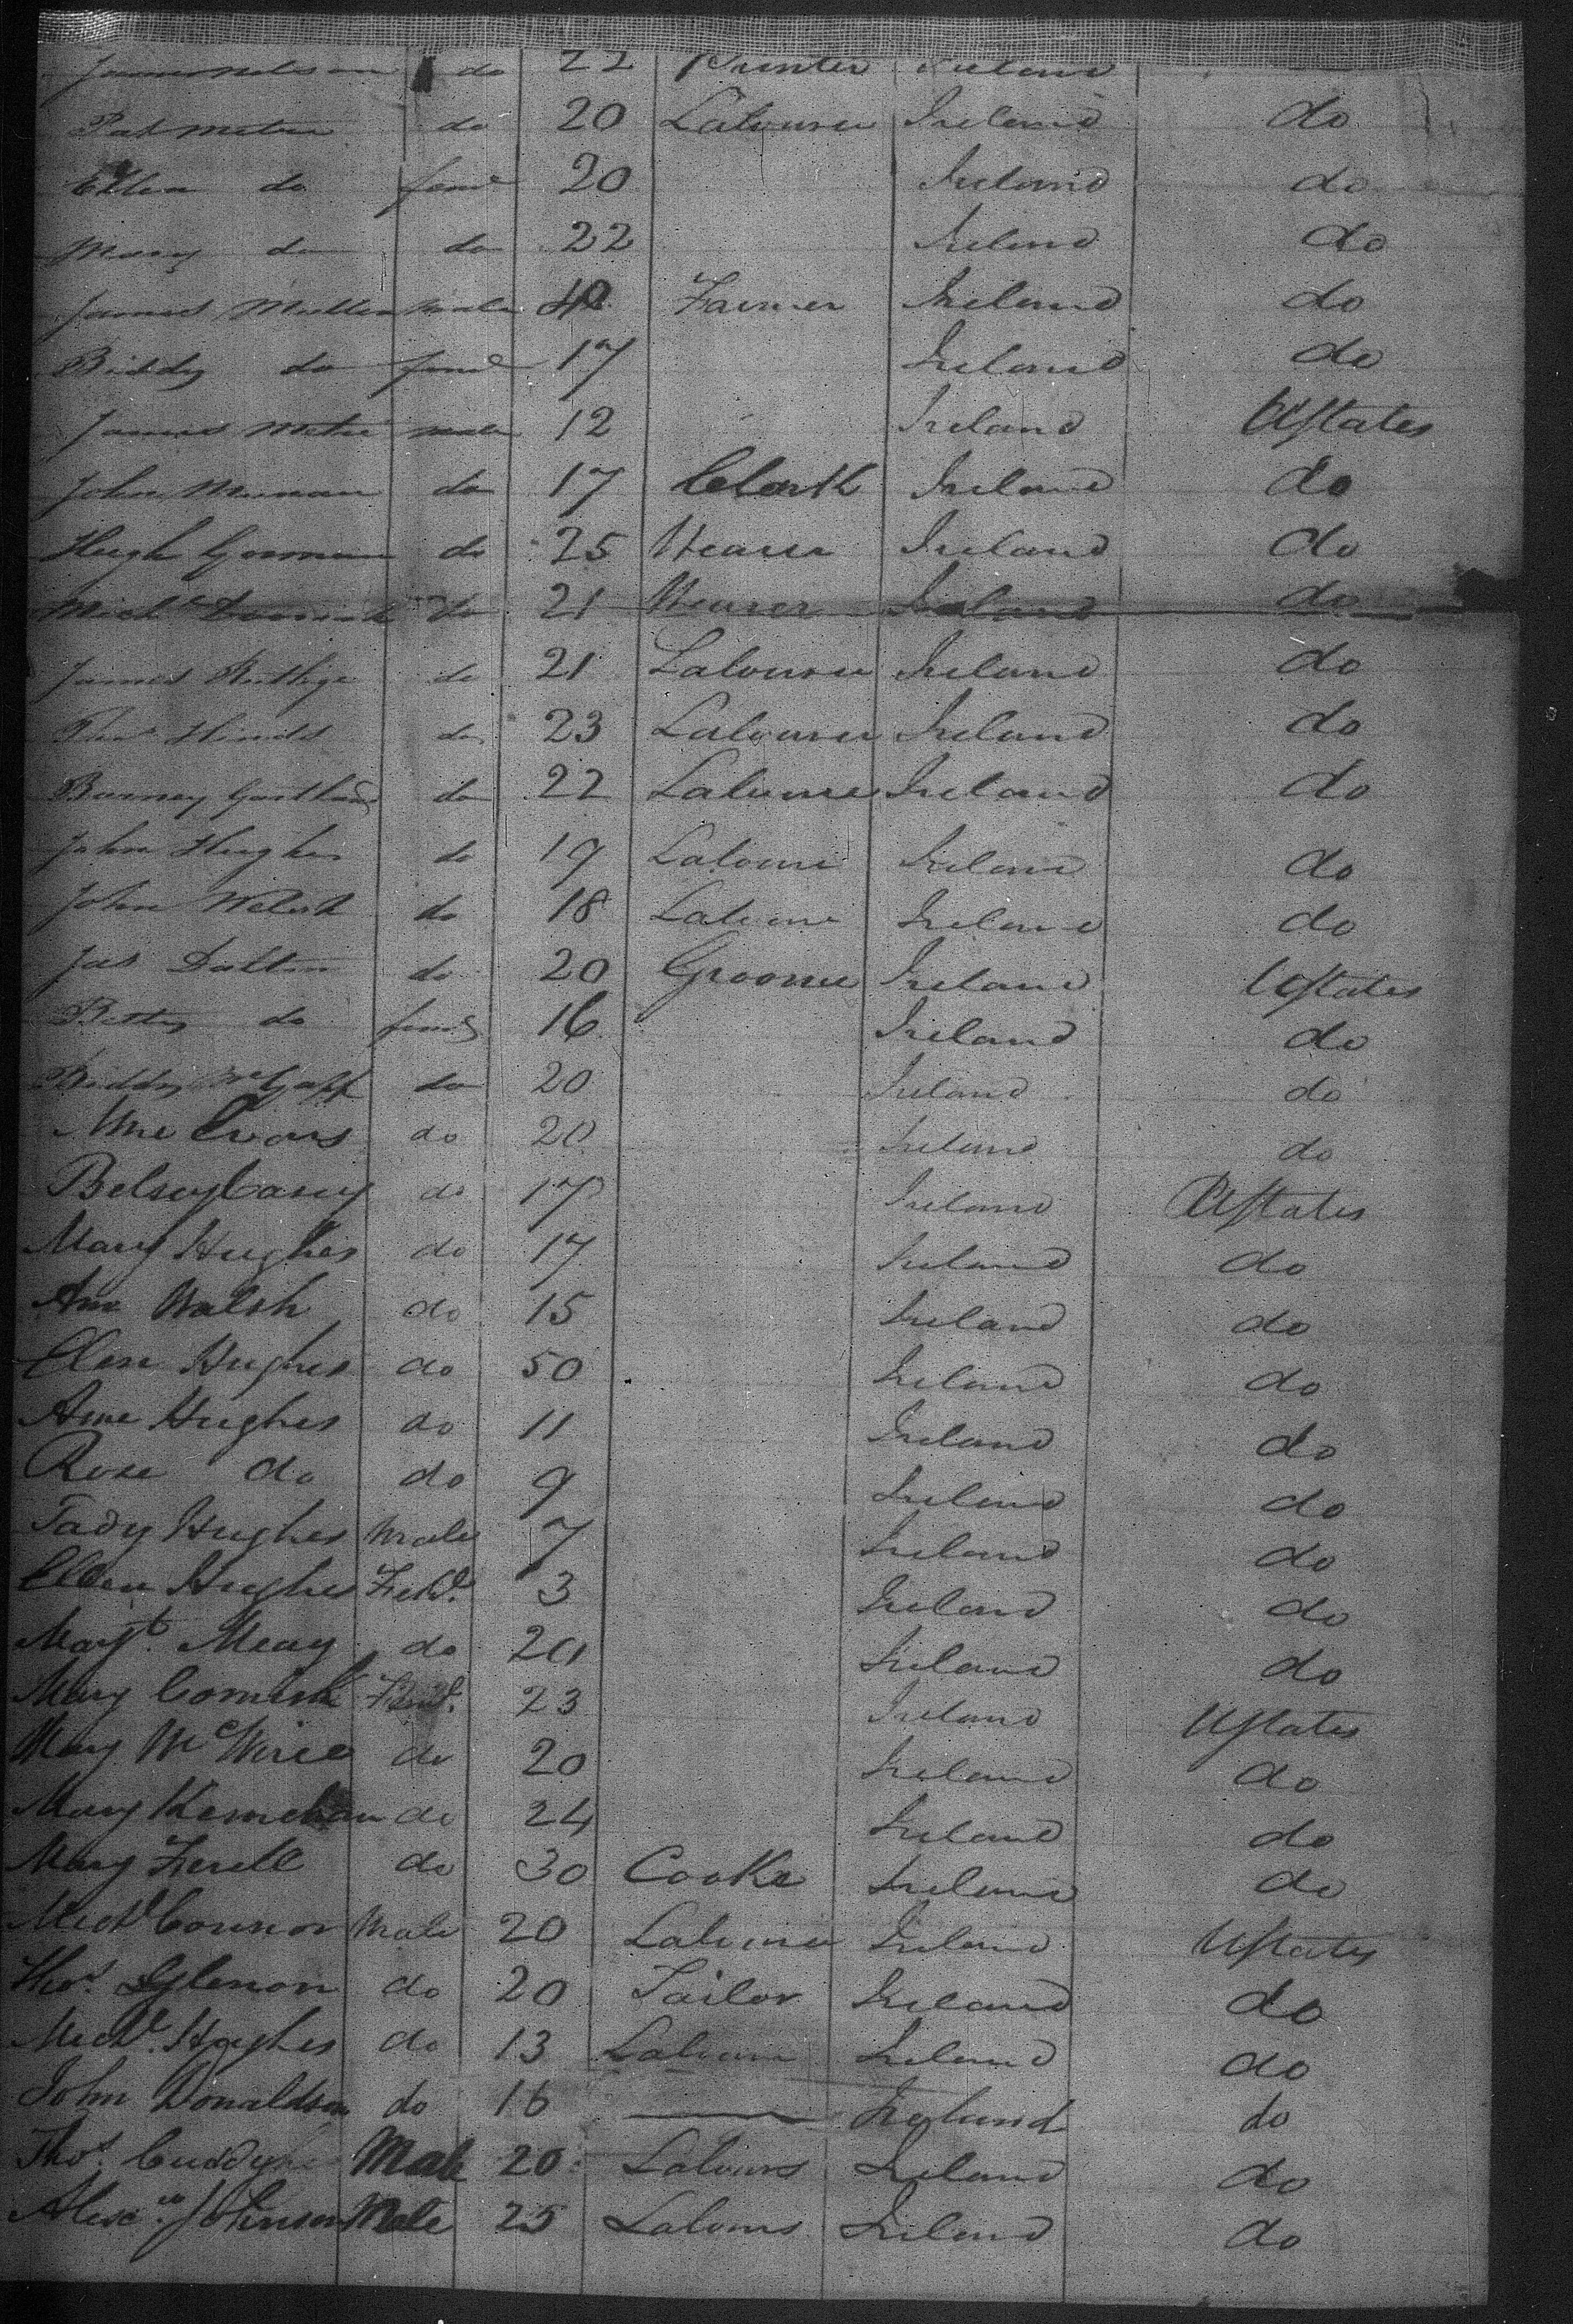 James do 22 Printer Ireland
Pat do 20 Labourer Ireland do
Ellen do fem 20 Ireland do
Mary do do 22 Ireland do
James Mullen male Farmer Ireland do
Biddy do fem 17 Ireland do
James male 12 Ireland UStates
John do 17 Clark Ireland do
Hugh Gorman do 25 Weaver Ireland do
Michl do 21 Weaver Ireland do
James do 21 Labourer Ireland do
do 23 Labourer Ireland do
Barney do 22 Labourer Ireland do
John Hughes do 19 Laboure Ireland do
John Welsh do 18 Laboure Ireland do
Jas Dalton do 20 Groome Ireland UStates
Betty do fem 16 Ireland do
Biddy do 20 Ireland do
Ane Evans do 20 Ireland do
Betsey Casey do 17 Ireland UStates
Mary Hughes do 17 Ireland do
Ann Walsh do 15 Ireland do
Ellen Hughes do 50 Ireland do
Anne Hughes do 11 Ireland do
Rose do do 9 Ireland do
Tady Hughes Male 7 Ireland do
Ellen Hughes 3 Ireland do
Margt. do 20 Ireland do
Mary 23 Ireland UStates
Mary McWire do 20 Ireland do
Mary do 24 Ireland do
Mary Ferell do 30 Cooke Ireland do
Michl Connor Male 20 Labourer Ireland UStates
Thos. Glenon do 20 Tailor Ireland do
Michl. Hughes do 13 Laboure Ireland do
John Donaldson do 16 Ireland do
Thos. Male 20 Labours Ireland do
Alexr. Johnson Male 25 Labours Ireland do